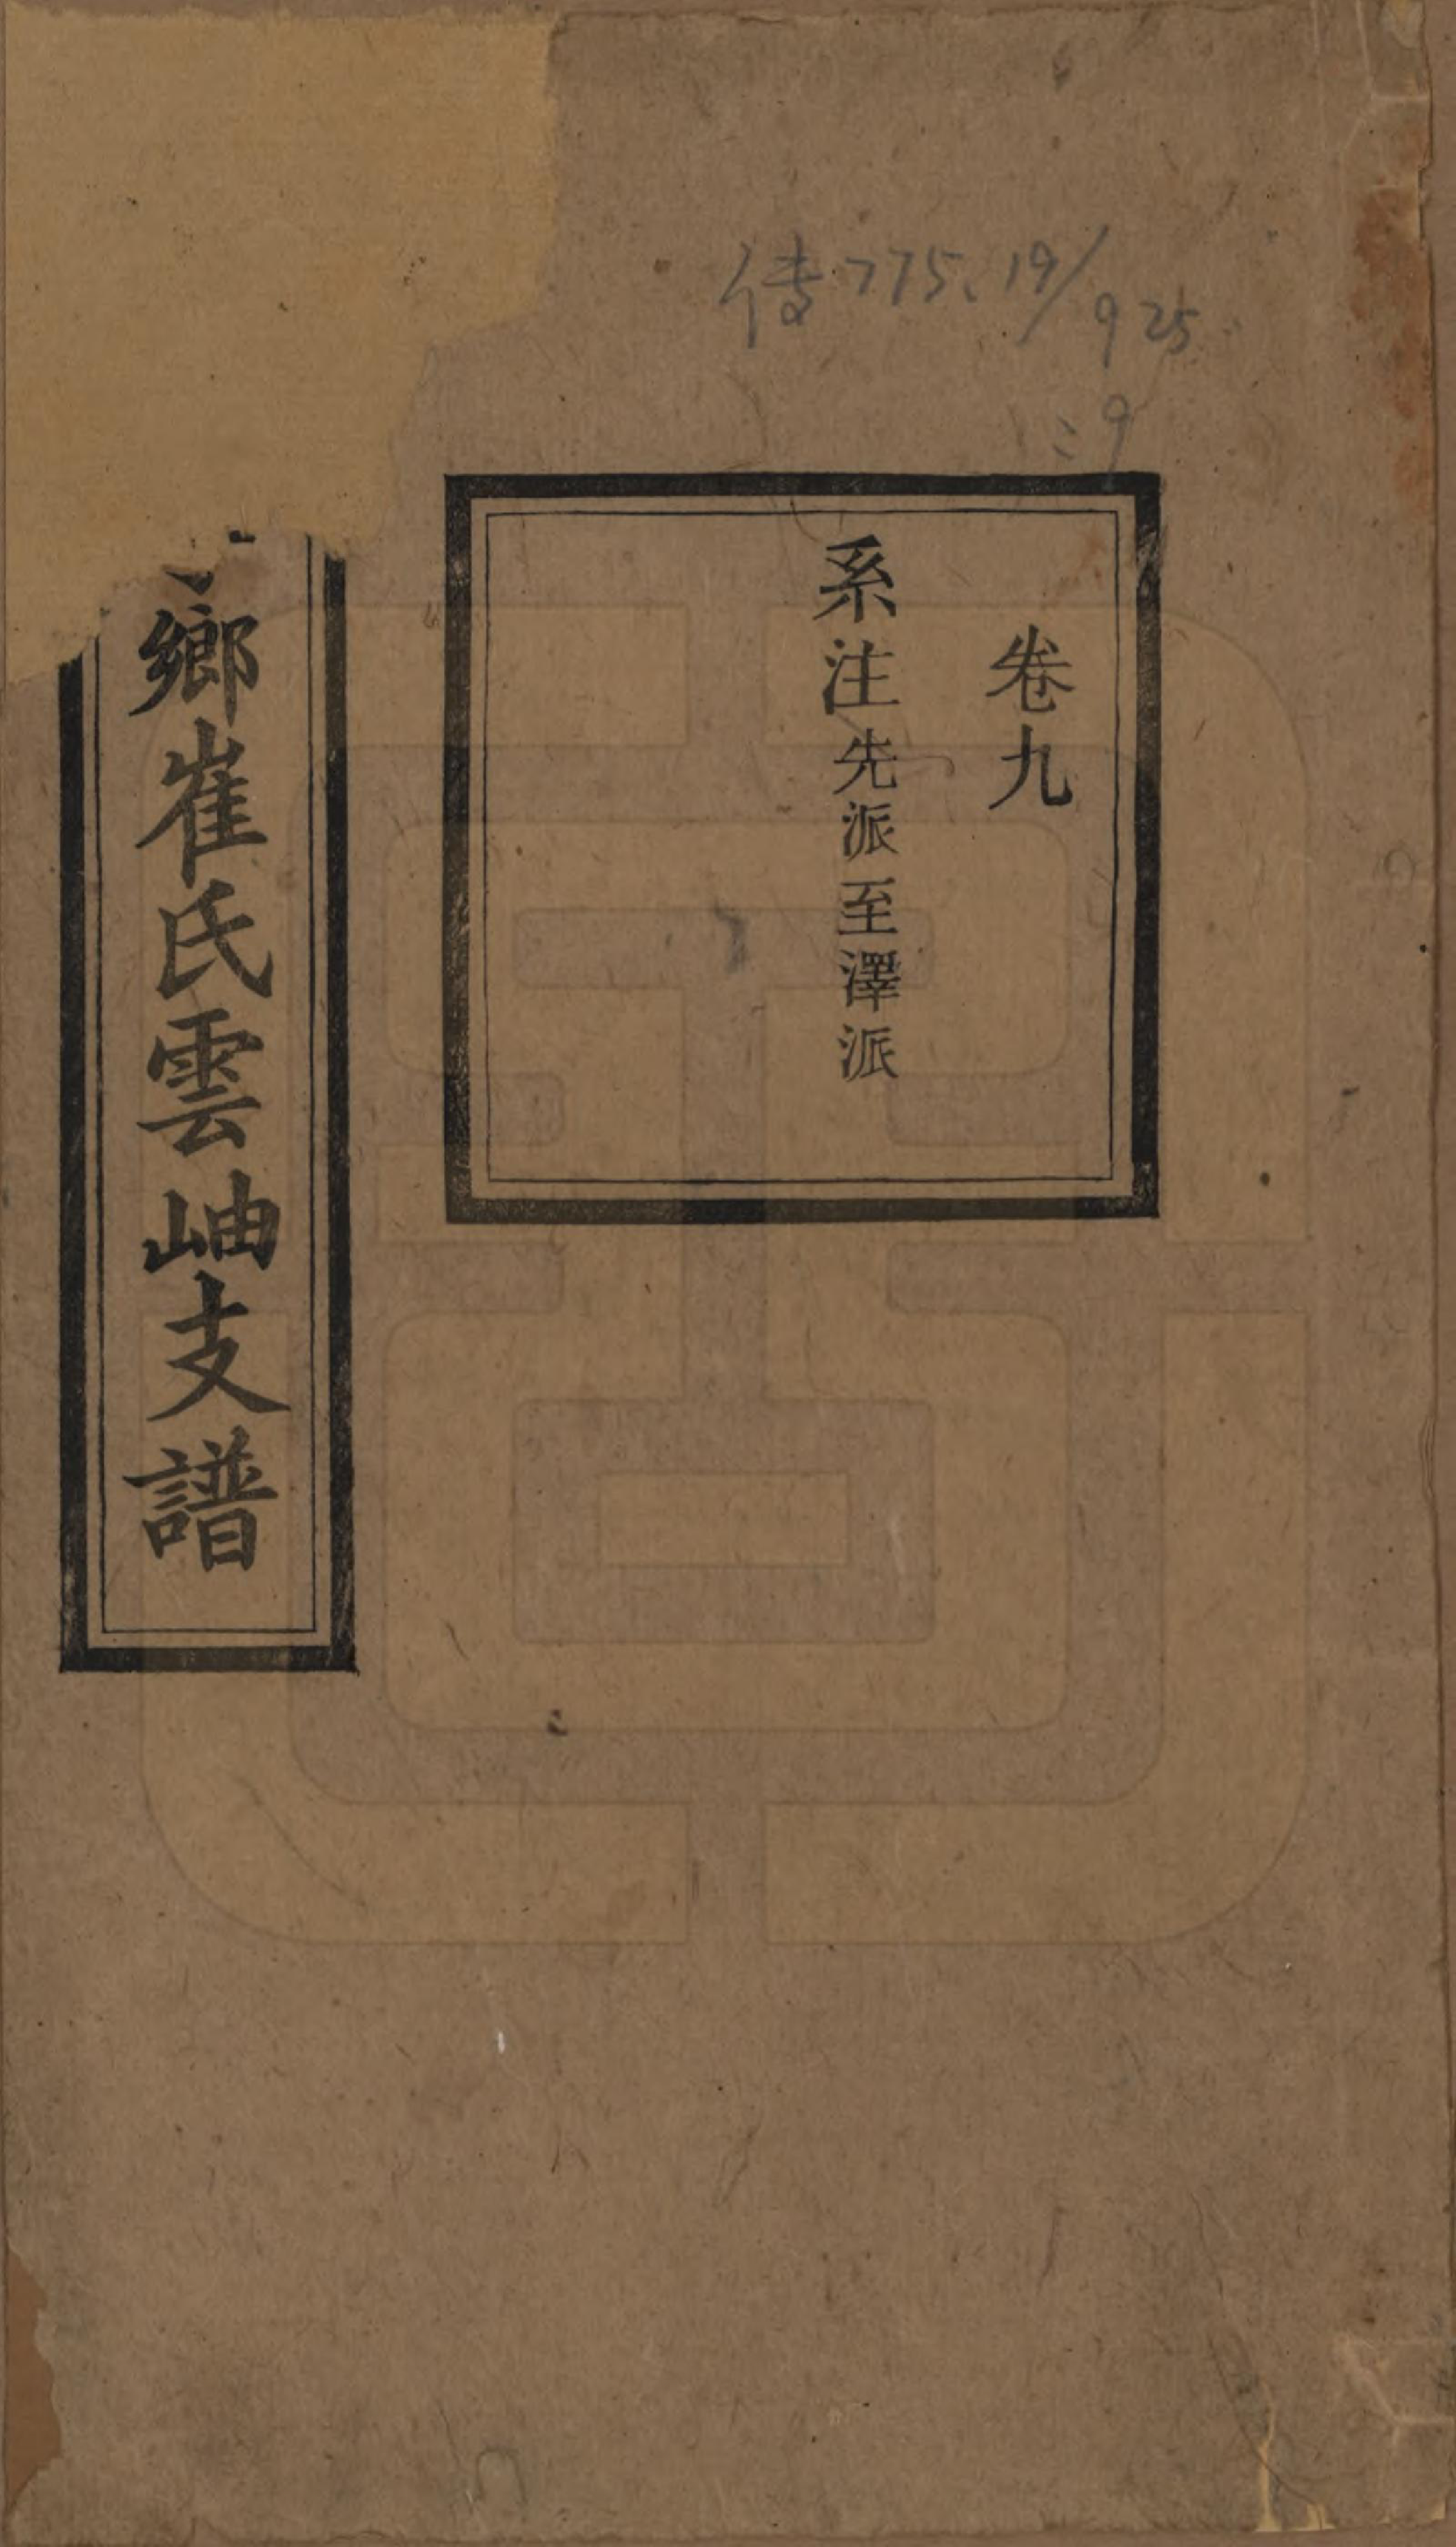 传775.19/925
:9
卷九
系注先派至澤派
鄉崔氏雲岫支譜